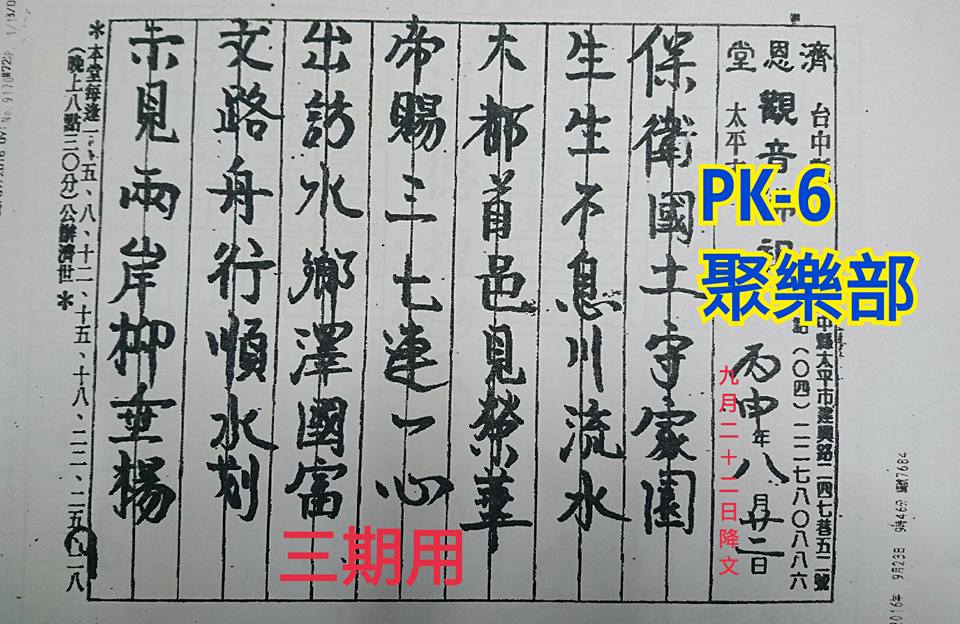 濟恩堂
中縣太平市建興路二四七巷五二號
(〇四)二二七八〇八八六
觀音
丙申年八月廿二日
PK-6
聚樂部
九月二十二日降文
保衛國土守家園
生生不息川流水
大都首邑見榮華
帝賜三七連一心
出訪水鄉澤國富
文路舟行順水刻
赤見兩岸柳垂楊
三期用
＊本堂每逢一、五、八、十二、十五、十八、二二、二五、二八
(晚上八點三〇分)公辦濟世＊
016年 9月23日 9時46分 編號7684